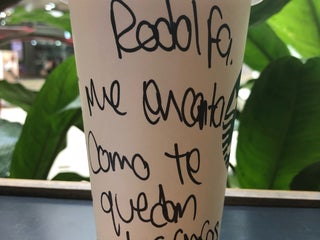 Rodolfo,
me encanta
como te
quedan